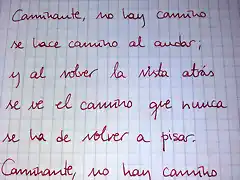 Caminante, no hay camino
se hace camino al andar;
y al volver la vista atrás
se ve el camino que nunca
se ha de volver a pisar.
Caminante, no hay camino